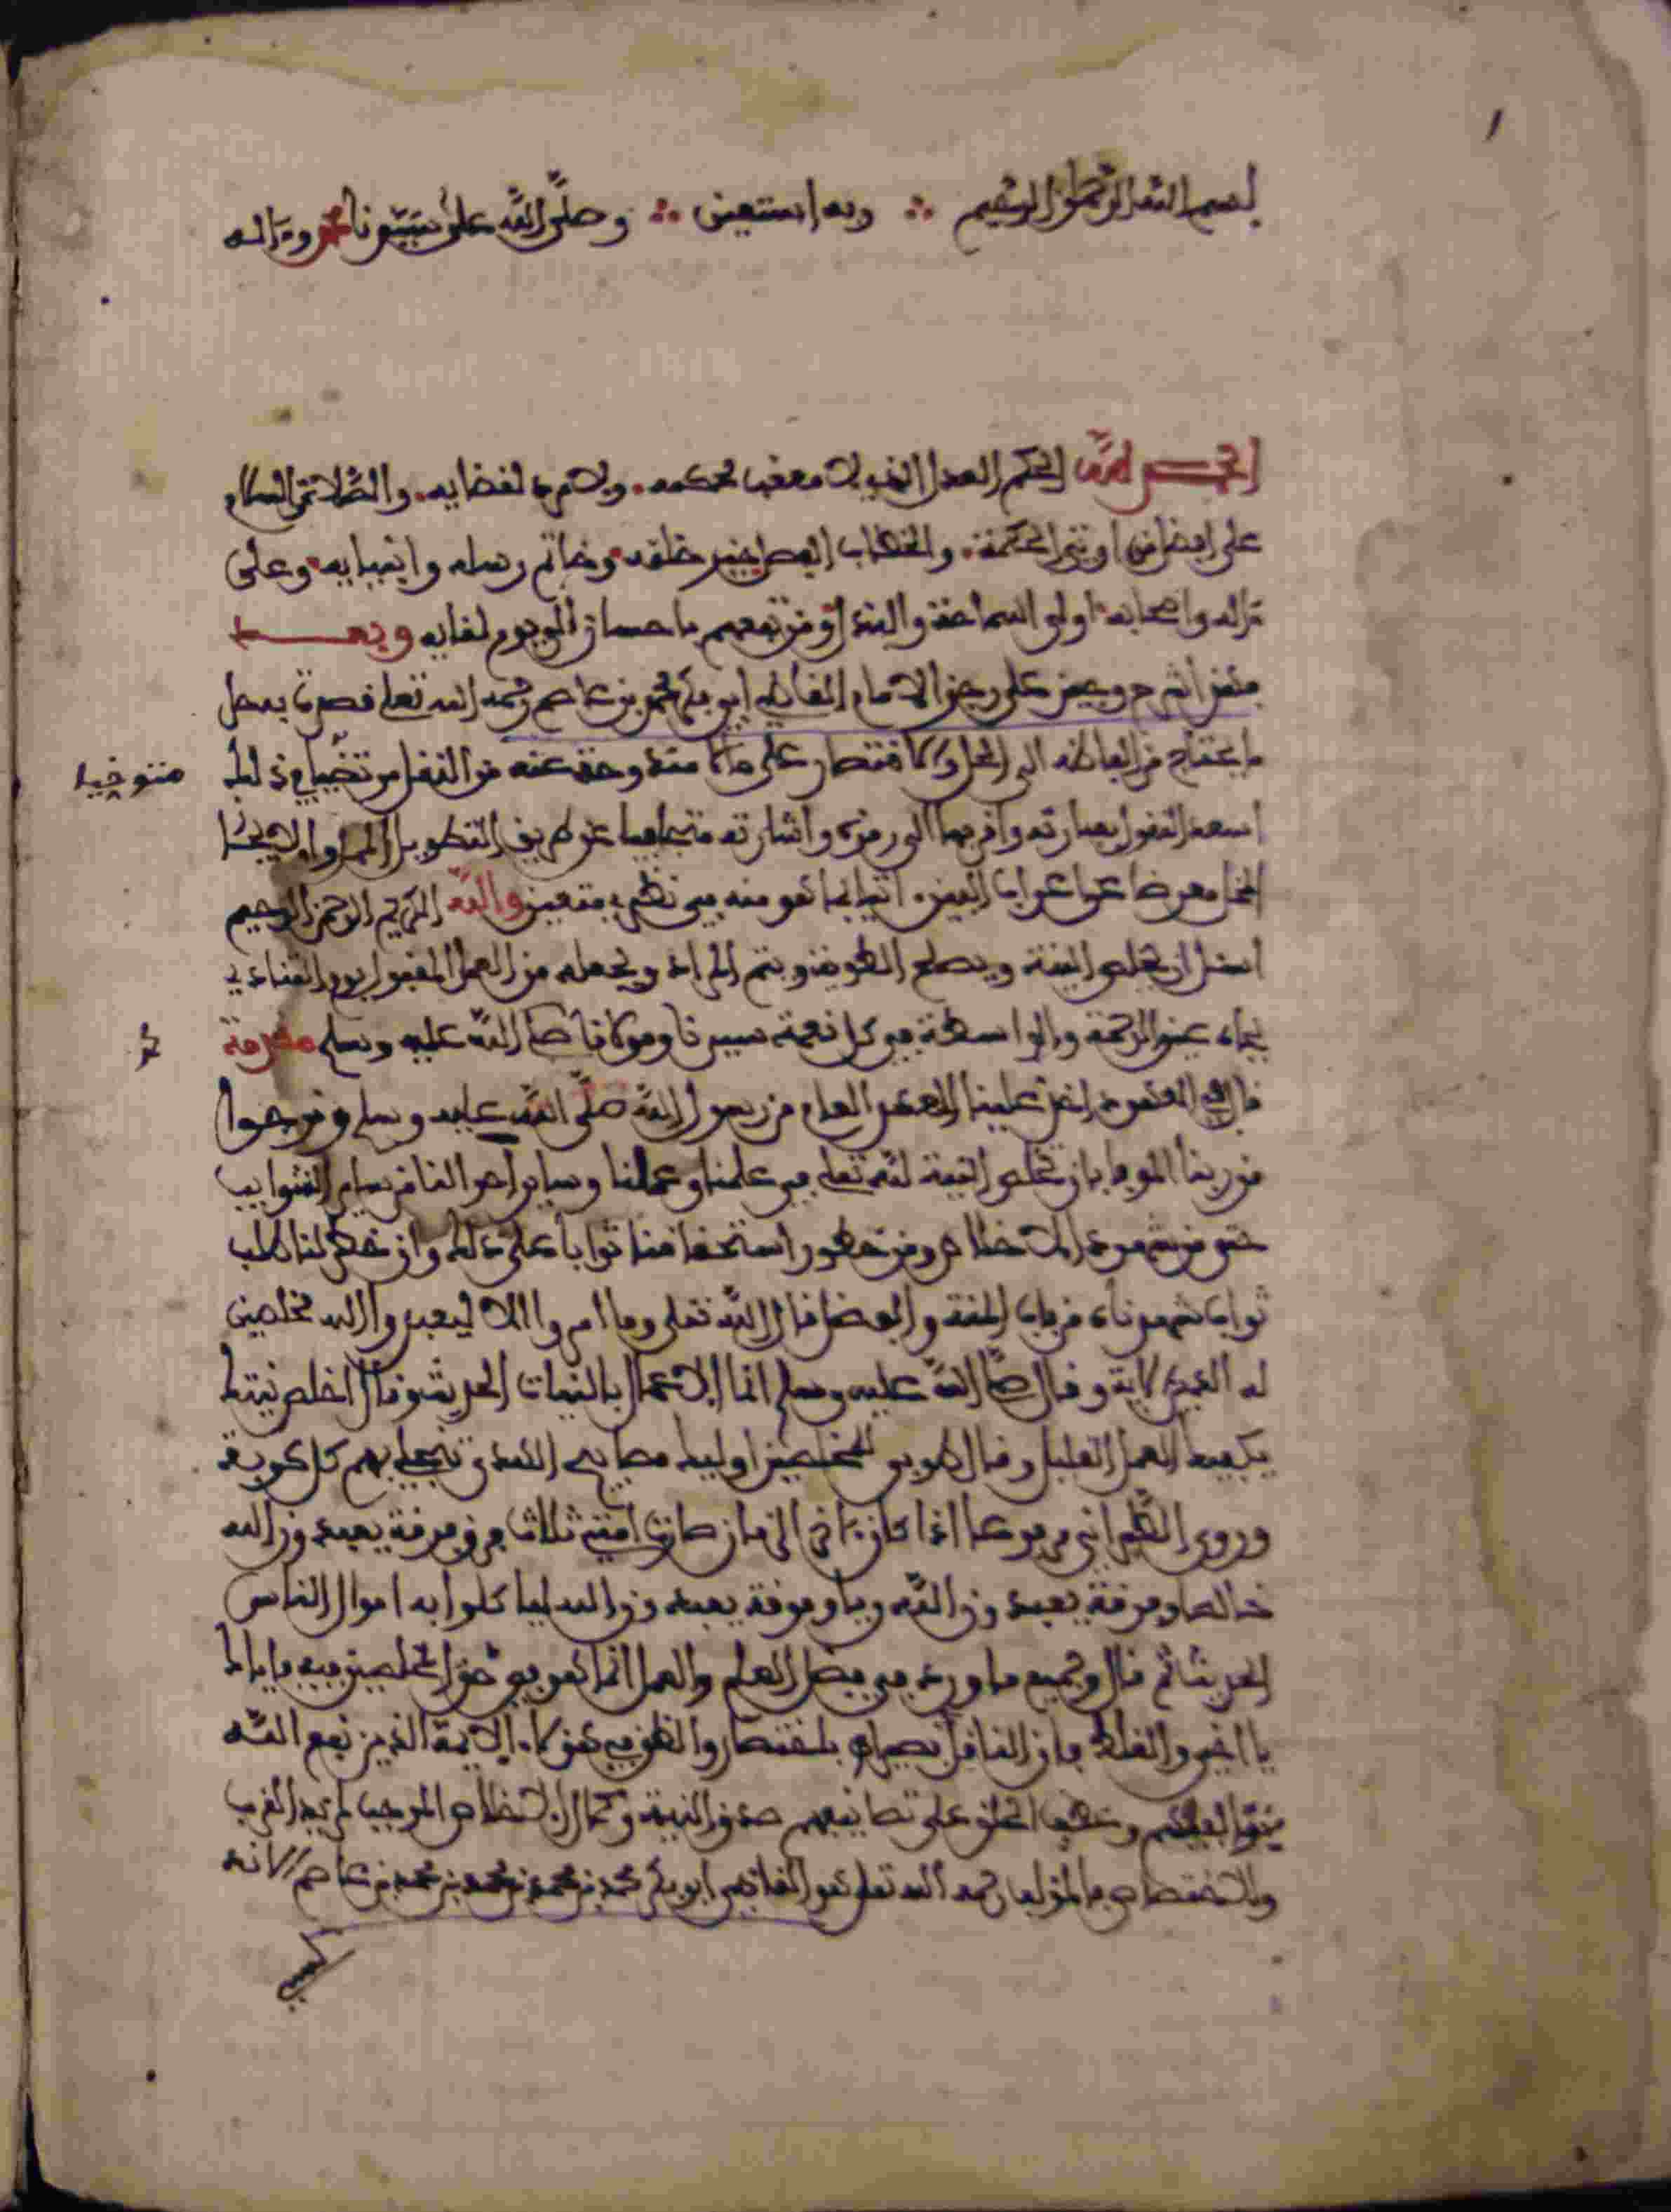 بسم الله الرحمن الرحيم ∴ وبه استعين ∴ وصلى الله على سيدنا محمد وءاله
الحمد لله الحكم العدل الذي لا معقب لحكمه . ولا مرد لقضايه . والصلاة ثم السلام
على افضل من اوتي الحكمة . والخطاب الفصل خير خلقه وخاتم رسله وانبيايه وعلى
ءاله واصحابه اولي السماحة والندى ومن تبعهم باحسان الى يوم لقايه وبعد
فهذا شرح وجيز على رجز الامام القاضي ابي بكر محمد بن عاصم رحمه الله تعلى قصدت به حل
ما يحتاج من الفاظه الى الحل والاقتصار على ما لا منه وحق عنه من النقل مرتضيا في ذلك
متوخيا
اسعد النقول بعبارته واقربها الى رمزه واشارته متجافيا عن طريق التطويل الممل والايجاز
المخل معرضا عن اعراب البين . اتيا بما هو منه في نظري متعين والله الكريم الرحمن الرحيم
اسئل ان يخلص النية ويصلح الطوية ويتم المراد ويجعله من العمل المقبول يوم التنادي
بجاه عين الرحمة والواسطة في كل نعمة سيدنا ومولانا صلى الله عليه وسلم مقدمة
قال في العهود اخذ علينا العهد العام من رسول الله صلى الله عليه وسلم ونرجوا
من ربنا الوفا بان نخلص النية لله تعلى في علمنا وعملنا وساير احوالنا من ساير الشوايب
حتى من شهود الاخلاص ومن خطور استحقاقنا ثوابا على ذلك وان خطر لنا طلب
ثواب شهدناه من باب المنة والفضل قال الله تعلى وما امروا الا ليعبدوا الله مخلصين
له الدين الاية وقال صلى الله عليه وسلم انما الاعمال بالنيات الحديث وقال اخلص نيتك
يكفيك العمل القليل وقال طوبى للمخلصين اوليك مصابيح الهدى تنجلي بهم كل كربة
وروى الطبراني مرفوعا اذا كان ءاخر الزمان صارت امتي ثلاث فرق فرقة يعبدون الله
خالصا وفرقة يعبدون الله رياء وفرقة يعبدون الله لياكلوا به اموال الناس
الحديث ثم قال وجميع ما ورد في فضل العلم والعمل انما هو في حق المخلصين فيه فاياك
يا اخي والغلط فان الناقد بصير اه باختصار وانظر في هؤلاء الايمة الذين نفع الله
وعطف الخلق على تصانيفهم صدق النية وكمال الاخلاص الموجب لمزيد القرب
والاختصاص فالمؤلف رحمه الله تعلى هو القاضي ابو بكر محمد بن محمد بن محمد بن محمد بن عاصم الاند